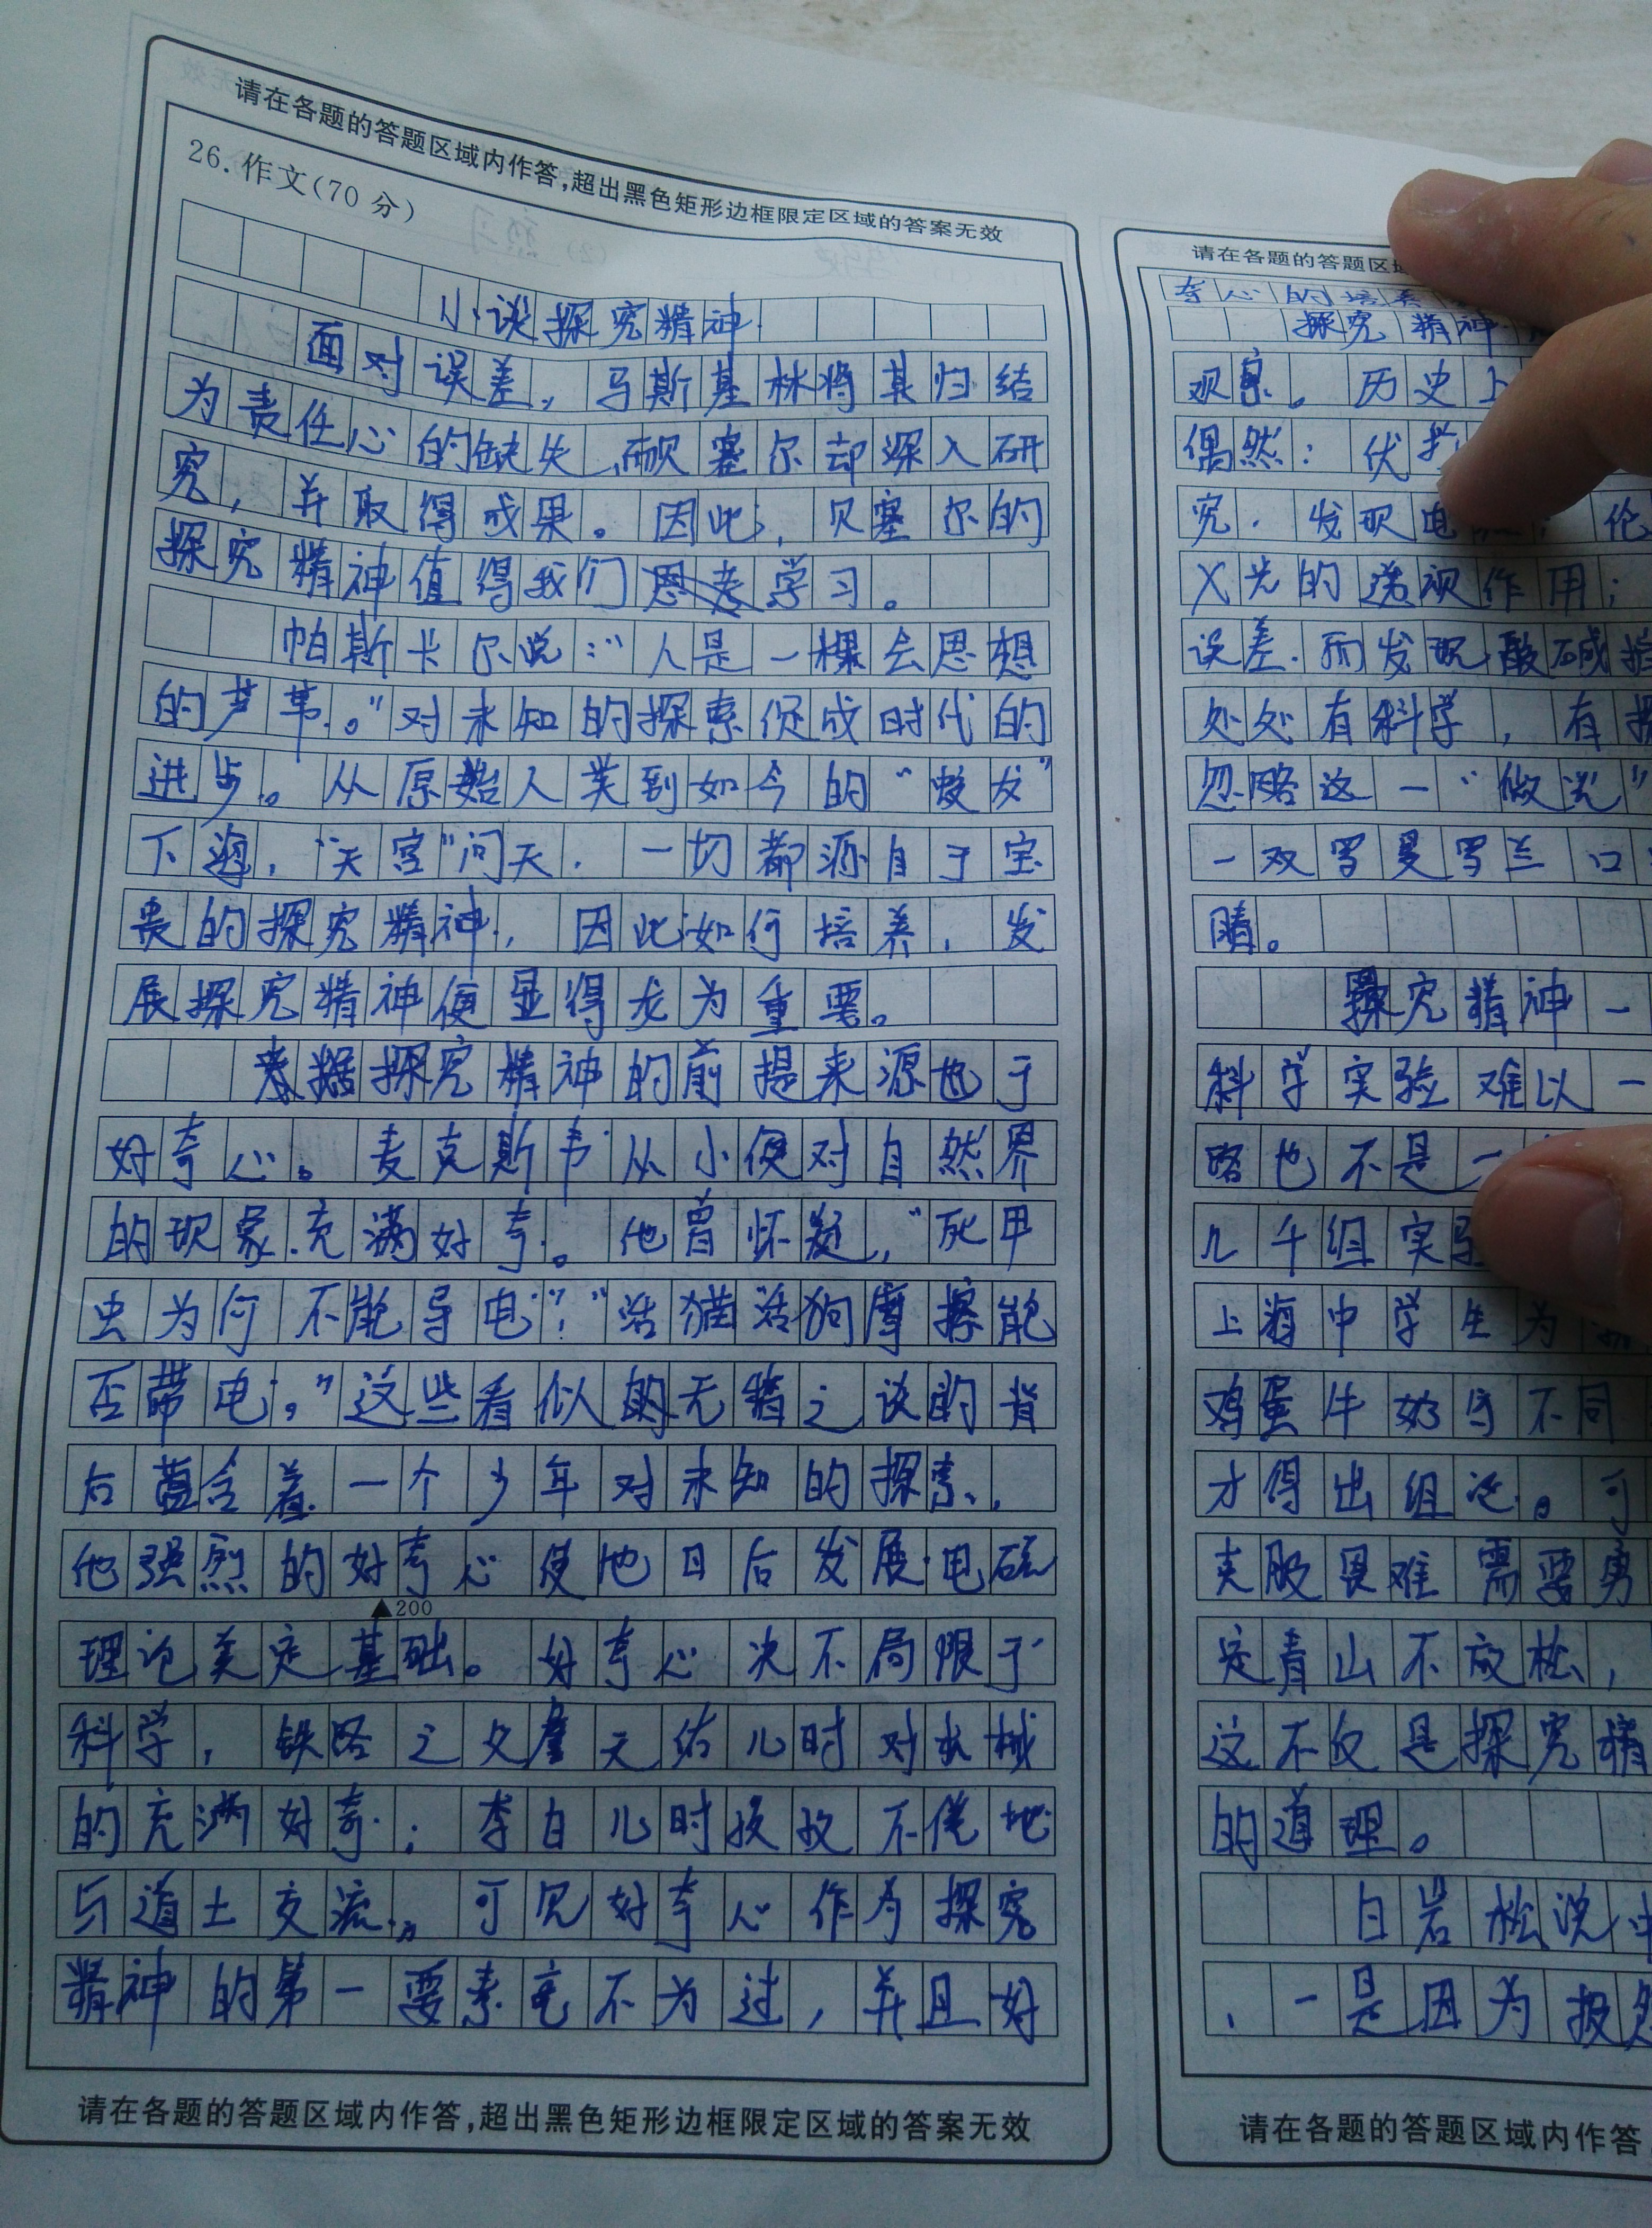 请在各题的答题区域内作答,超出黑色矩形边框限定区域的答案无效
26.作文(70分)
小谈探究精神
面对误差，马斯基林将其归结
为责任心的缺失，而贝塞尔却深入研
究，并取得成果。因此，贝塞尔的
探究精神值得我们思考学习。
帕斯卡尔说：“人是一棵会思想
的芦苇。”对未知的探索促成时代的
进步。从原始人类到如今的“蛟龙”
下海，“天宫”问天，一切都源自于宝
贵的探究精神，因此如何培养，发
展探究精神便显得尤为重要。
探究精神的前提来源也于
好奇心。麦克斯韦从小便对自然界
的现象充满好奇。他曾怀疑，“死甲
虫为何不能导电”，“活猫活狗摩擦能
否带电。”这些看似的无稽之谈的背
后蕴含着一个少年对未知的探索，
他强烈的好奇心使他日后发展电磁
▲200
理论奠定基础。好奇心决不局限于
科学，铁路之父詹天佑儿时对机械
的充满好奇；李白儿时孜孜不倦地
与道士交流。可见好奇心作为探究
精神的第一要素毫不为过，并且好
请在各题的答题区域内作答,超出黑色矩形边框限定区域的答案无效
请在各题的答题区域
奇心的培养
探究精神
观察。历史上
偶然：伏
究，发现电 伦
X光的透视作用；
误差，而发现酸碱指
处处有科学，有探
忽略这一“微光”
一双罗曼罗兰口
睛。
探究精神一
科学实验难以一
路也不是一
几千组实验
上海中学生为
鸡蛋牛奶 不同
才得出组论。可
克服畏难需要勇
定青山不放松，
这不仅是探究精
的道理。
白岩松说
，一是因为报
请在各题的答题区域内作答